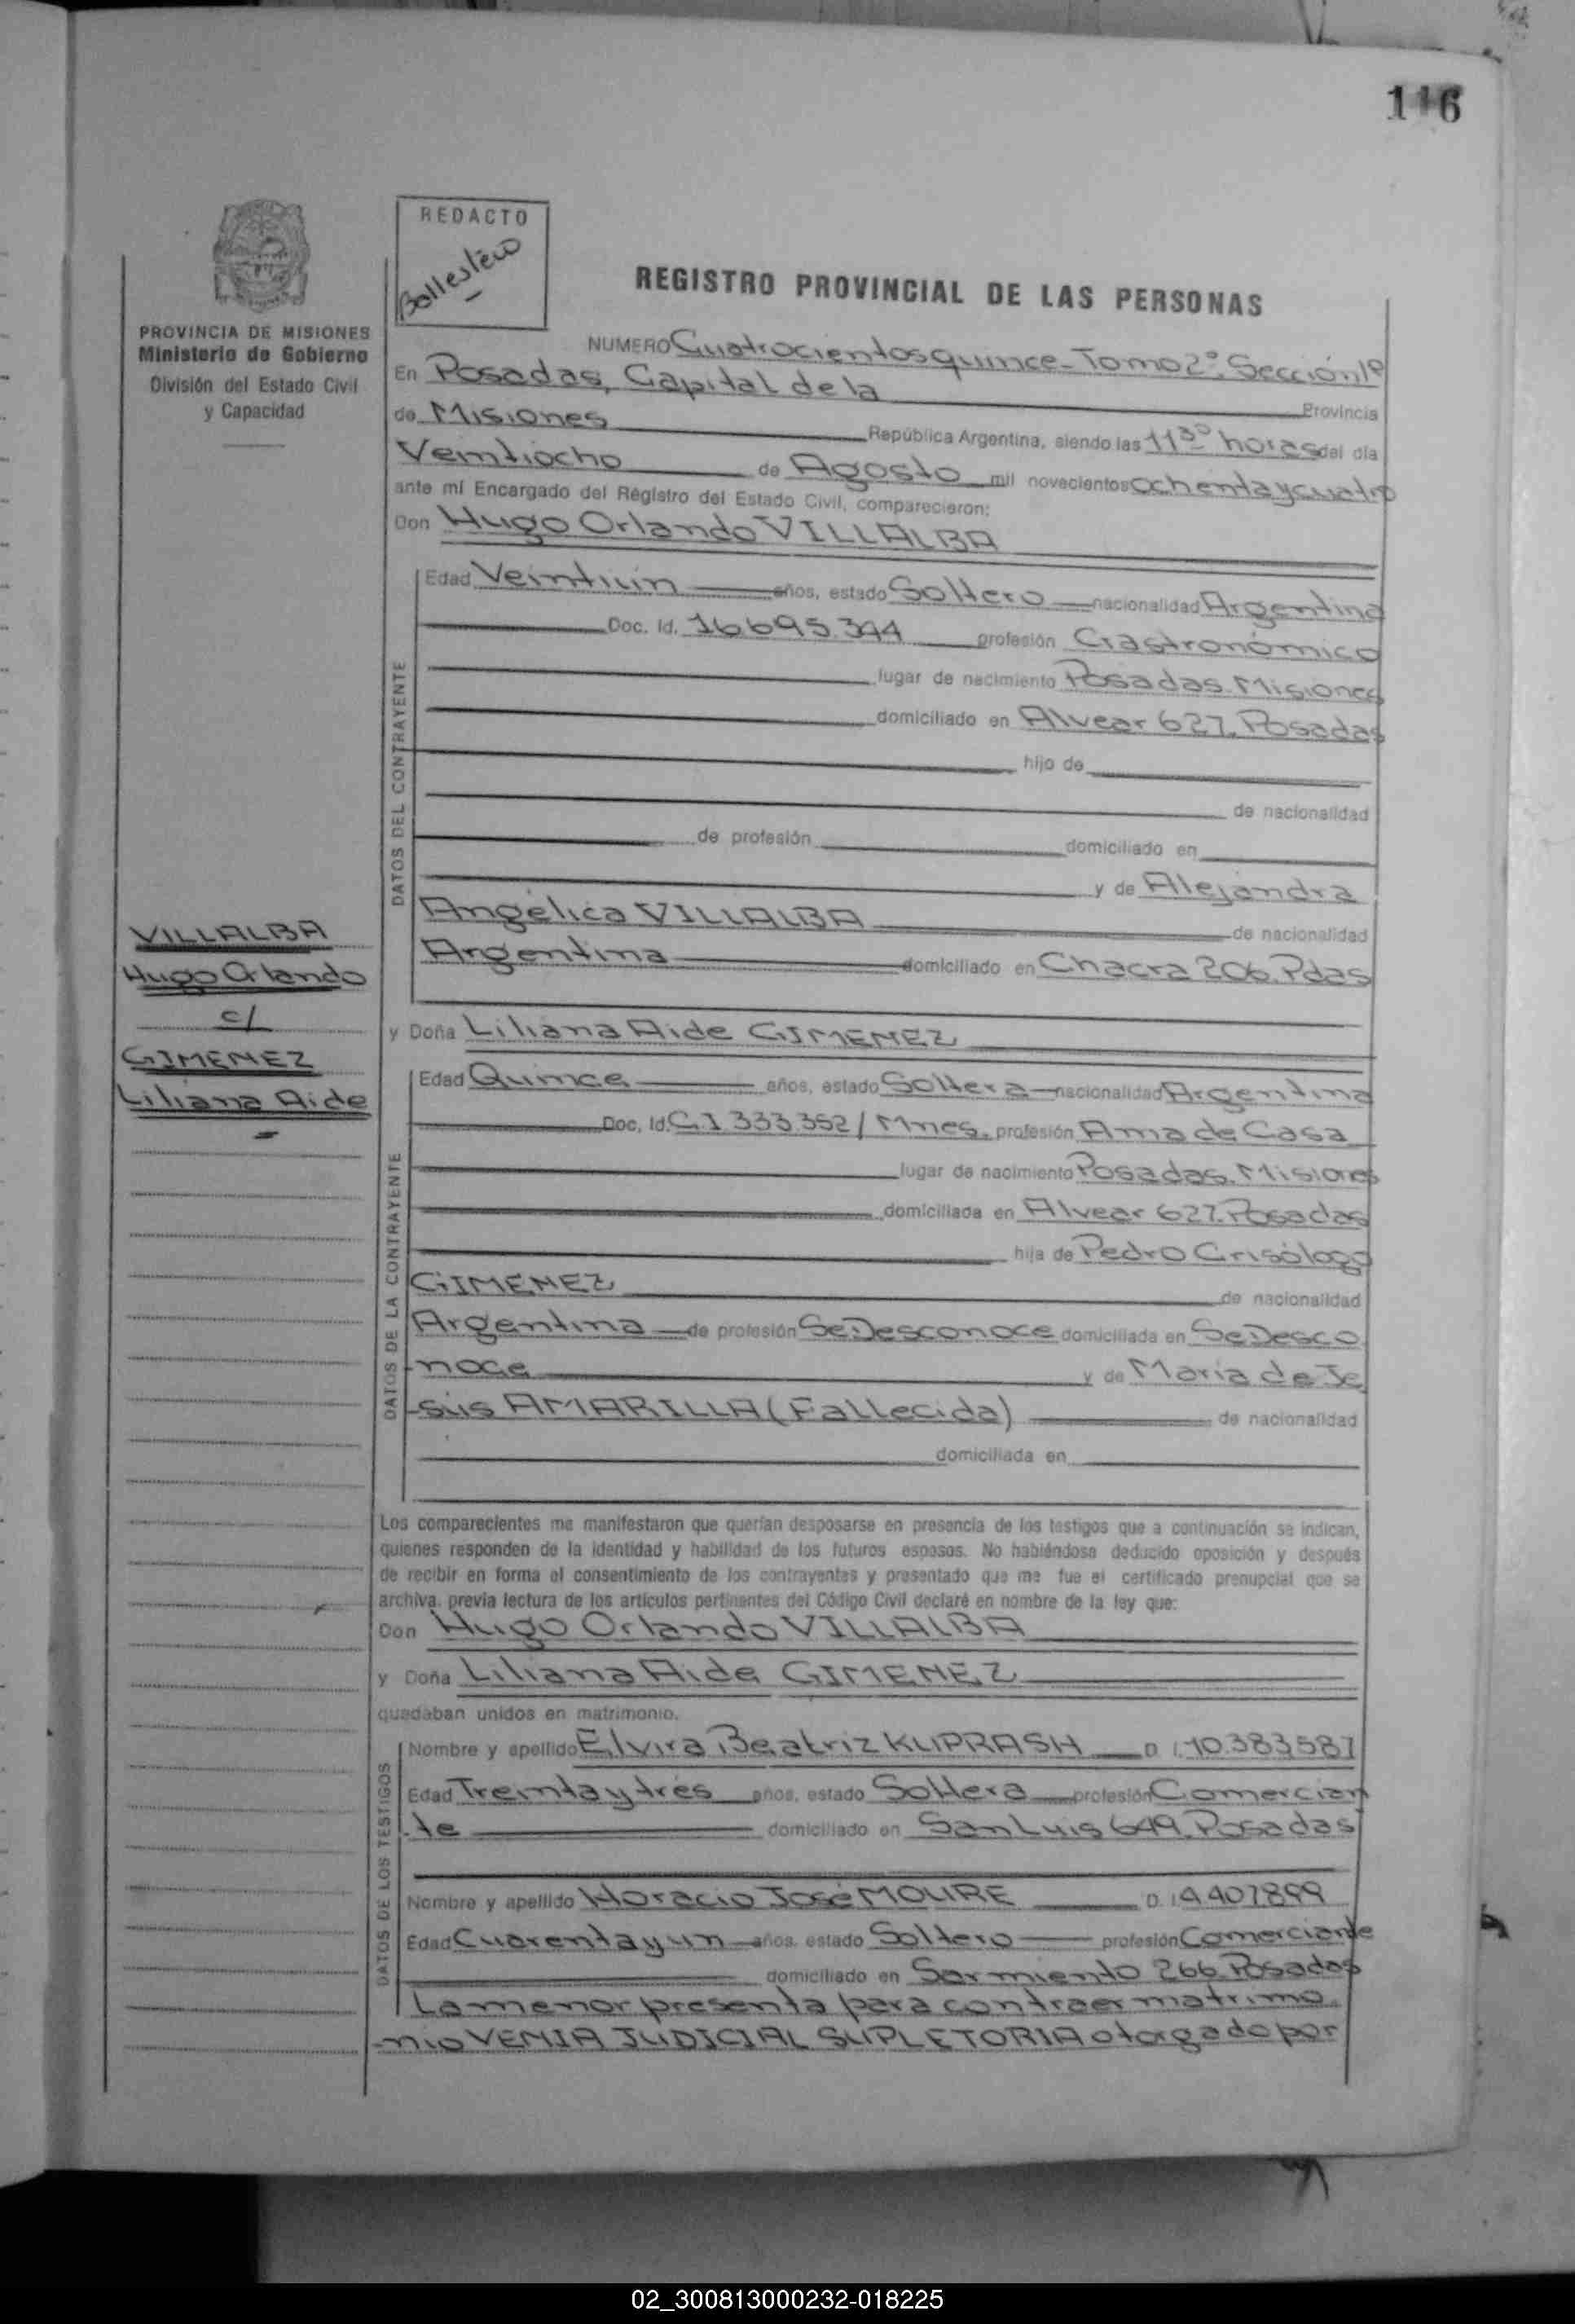 116
REDACTO
Ballestero
REGISTRO PROVINCIAL DE LAS PERSONAS
PROVINCIA DE MISIONES
Ministerio de Gobierno
División del Estado Civil
y Capacidad
NUMERO Cuatrocientos quince - Tomo 2º. Sección 1º
En Posadas, Capital de la Provincia
de Misiones República Argentina, siendo las 11 30 horas del día
Veintiocho de Agosto mil novecientos ochenta y cuatro
ante mí Encargado del Registro del Estado Civil, comparecieron:
Don Hugo Orlando VILLALBA
DATOS DEL CONTRAYENTE
Edad Veintiún años, estado Soltero nacionalidad Argentina
Doc. Id. 16.695.344 profesión Gastronómico
lugar de nacimiento Posadas. Misiones
domiciliado en Alvear 627. Posadas
hijo de
de nacionalidad
de profesión domiciliado en
y de Alejandra
Angélica VILLALBA de nacionalidad
Argentina domiciliado en Chacra 206. Pdas
VILLALBA
Hugo Orlando
c/
GIMENEZ
Liliana Aide
y Doña Liliana Aide GIMENEZ
DATOS DE LA CONTRAYENTE
Edad Quince años, estado Soltera nacionalidad Argentina
Doc. Id. C.I 333.352/Mnes. profesión Ama de Casa
lugar de nacimiento Posadas. Misiones
domiciliada en Alvear 627. Posadas
hija de Pedro Crisólogo
GIMENEZ de nacionalidad
Argentina de profesión Se Desconoce domiciliada en Se Desco
noce y de María de Je
sús AMARILLA (Fallecida) de nacionalidad
domiciliada en
Los comparecientes me manifestaron que querían desposarse en presencia de los testigos que a continuación se indican,
quienes responden de la identidad y habilidad de los futuros esposos. No habiéndose deducido oposición y después
de recibir en forma el consentimiento de los contrayentes y presentado que me fue el certificado prenupcial que se
archiva, previa lectura de los artículos pertinentes del Código Civil declaré en nombre de la ley que:
Don Hugo Orlando VILLALBA
y Doña Liliana Aide GIMENEZ
quedaban unidos en matrimonio.
DATOS DE LOS TESTIGOS
Nombre y apellido Elvira Beatriz KUPRASH D. I. 10.383.587
Edad Treinta y tres años, estado Soltera profesión Comercian
te domiciliado en San Luis 649. Posadas
Nombre y apellido Horacio José MOURE D. I. 4.407.899
Edad Cuarenta y un años, estado Soltero profesión Comerciante
domiciliado en Sarmiento 266. Posadas
La menor presenta para contraer matrimo
-nio VENIA JUDICIAL SUPLETORIA otorgado por
02_300813000232-018225